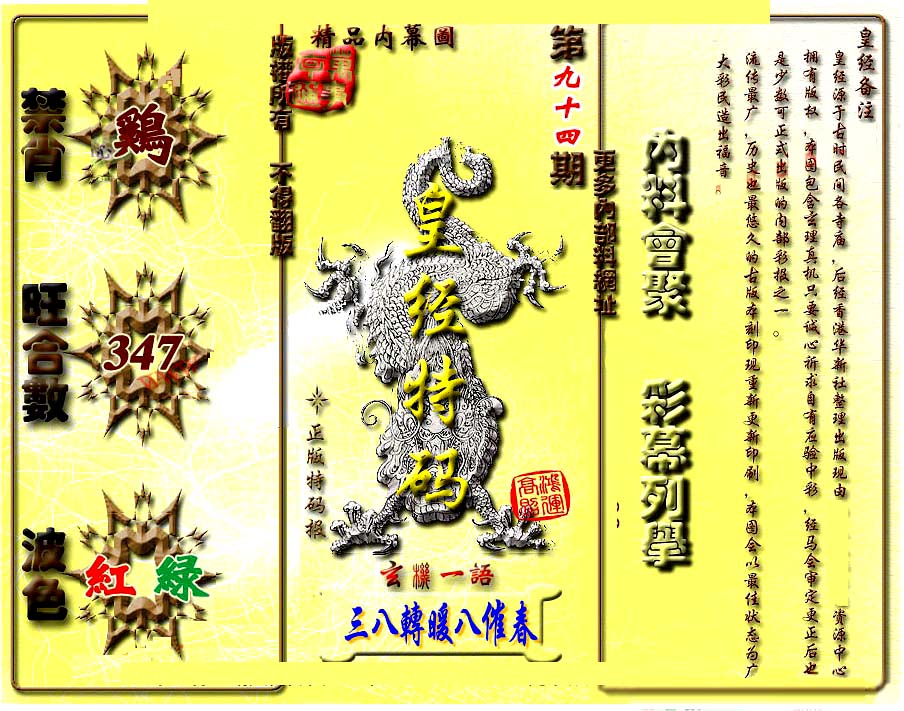 皇经备注
皇经源于古时民间各寺庙，后经香港华新社整理出版现由 资源中心
拥有版权，本图包含玄理真机只要诚心祈求自有应验中彩，经马会审定更正后也
是少数可正式出版的内部彩报之一。
流传最广，历史也最悠久的古版本刻印现重新更新印刷，本图会以最佳状态为广
大彩民造出福音
內料會聚 彩幕列舉
更多內部料網址
第九十四期
精品内幕圖
版權所有 不得翻版
皇经特码
正版特码报
鴻運高照
玄機一語
三八轉暖八催春
禁肖
鷄
旺合數
347
波色
紅 綠